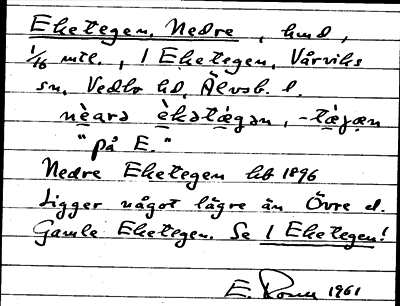 Eketegen, Nedre, hmd,
1/16 mtl., 1 Eketegen, Vårviks
sn, Vedbo hd, Älvsb. l.
nèarə èkətǽgən, -tǽgən
"på E."
Nedre Eketegen hb 1896
Ligger något lägre än Övre el.
Gamle Eketegen. Se 1 Eketegen!
E. 1961